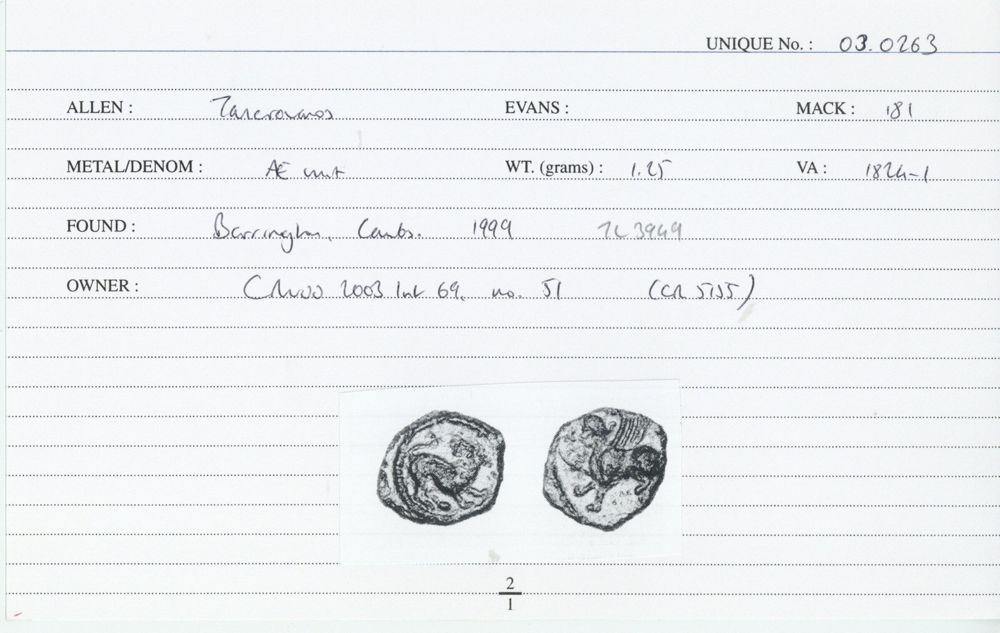 UNIQUE No. : 03.0263
ALLEN : Tasciovanos EVANS : MACK : 181
METAL/DENOM : AE unit WT. (grams) : 1.25 VA : 1824-1
FOUND : Barrington, Cambs. 1999 TL 3949
OWNER : 2003 List 69, no. 51 (CR 5155)
2
1